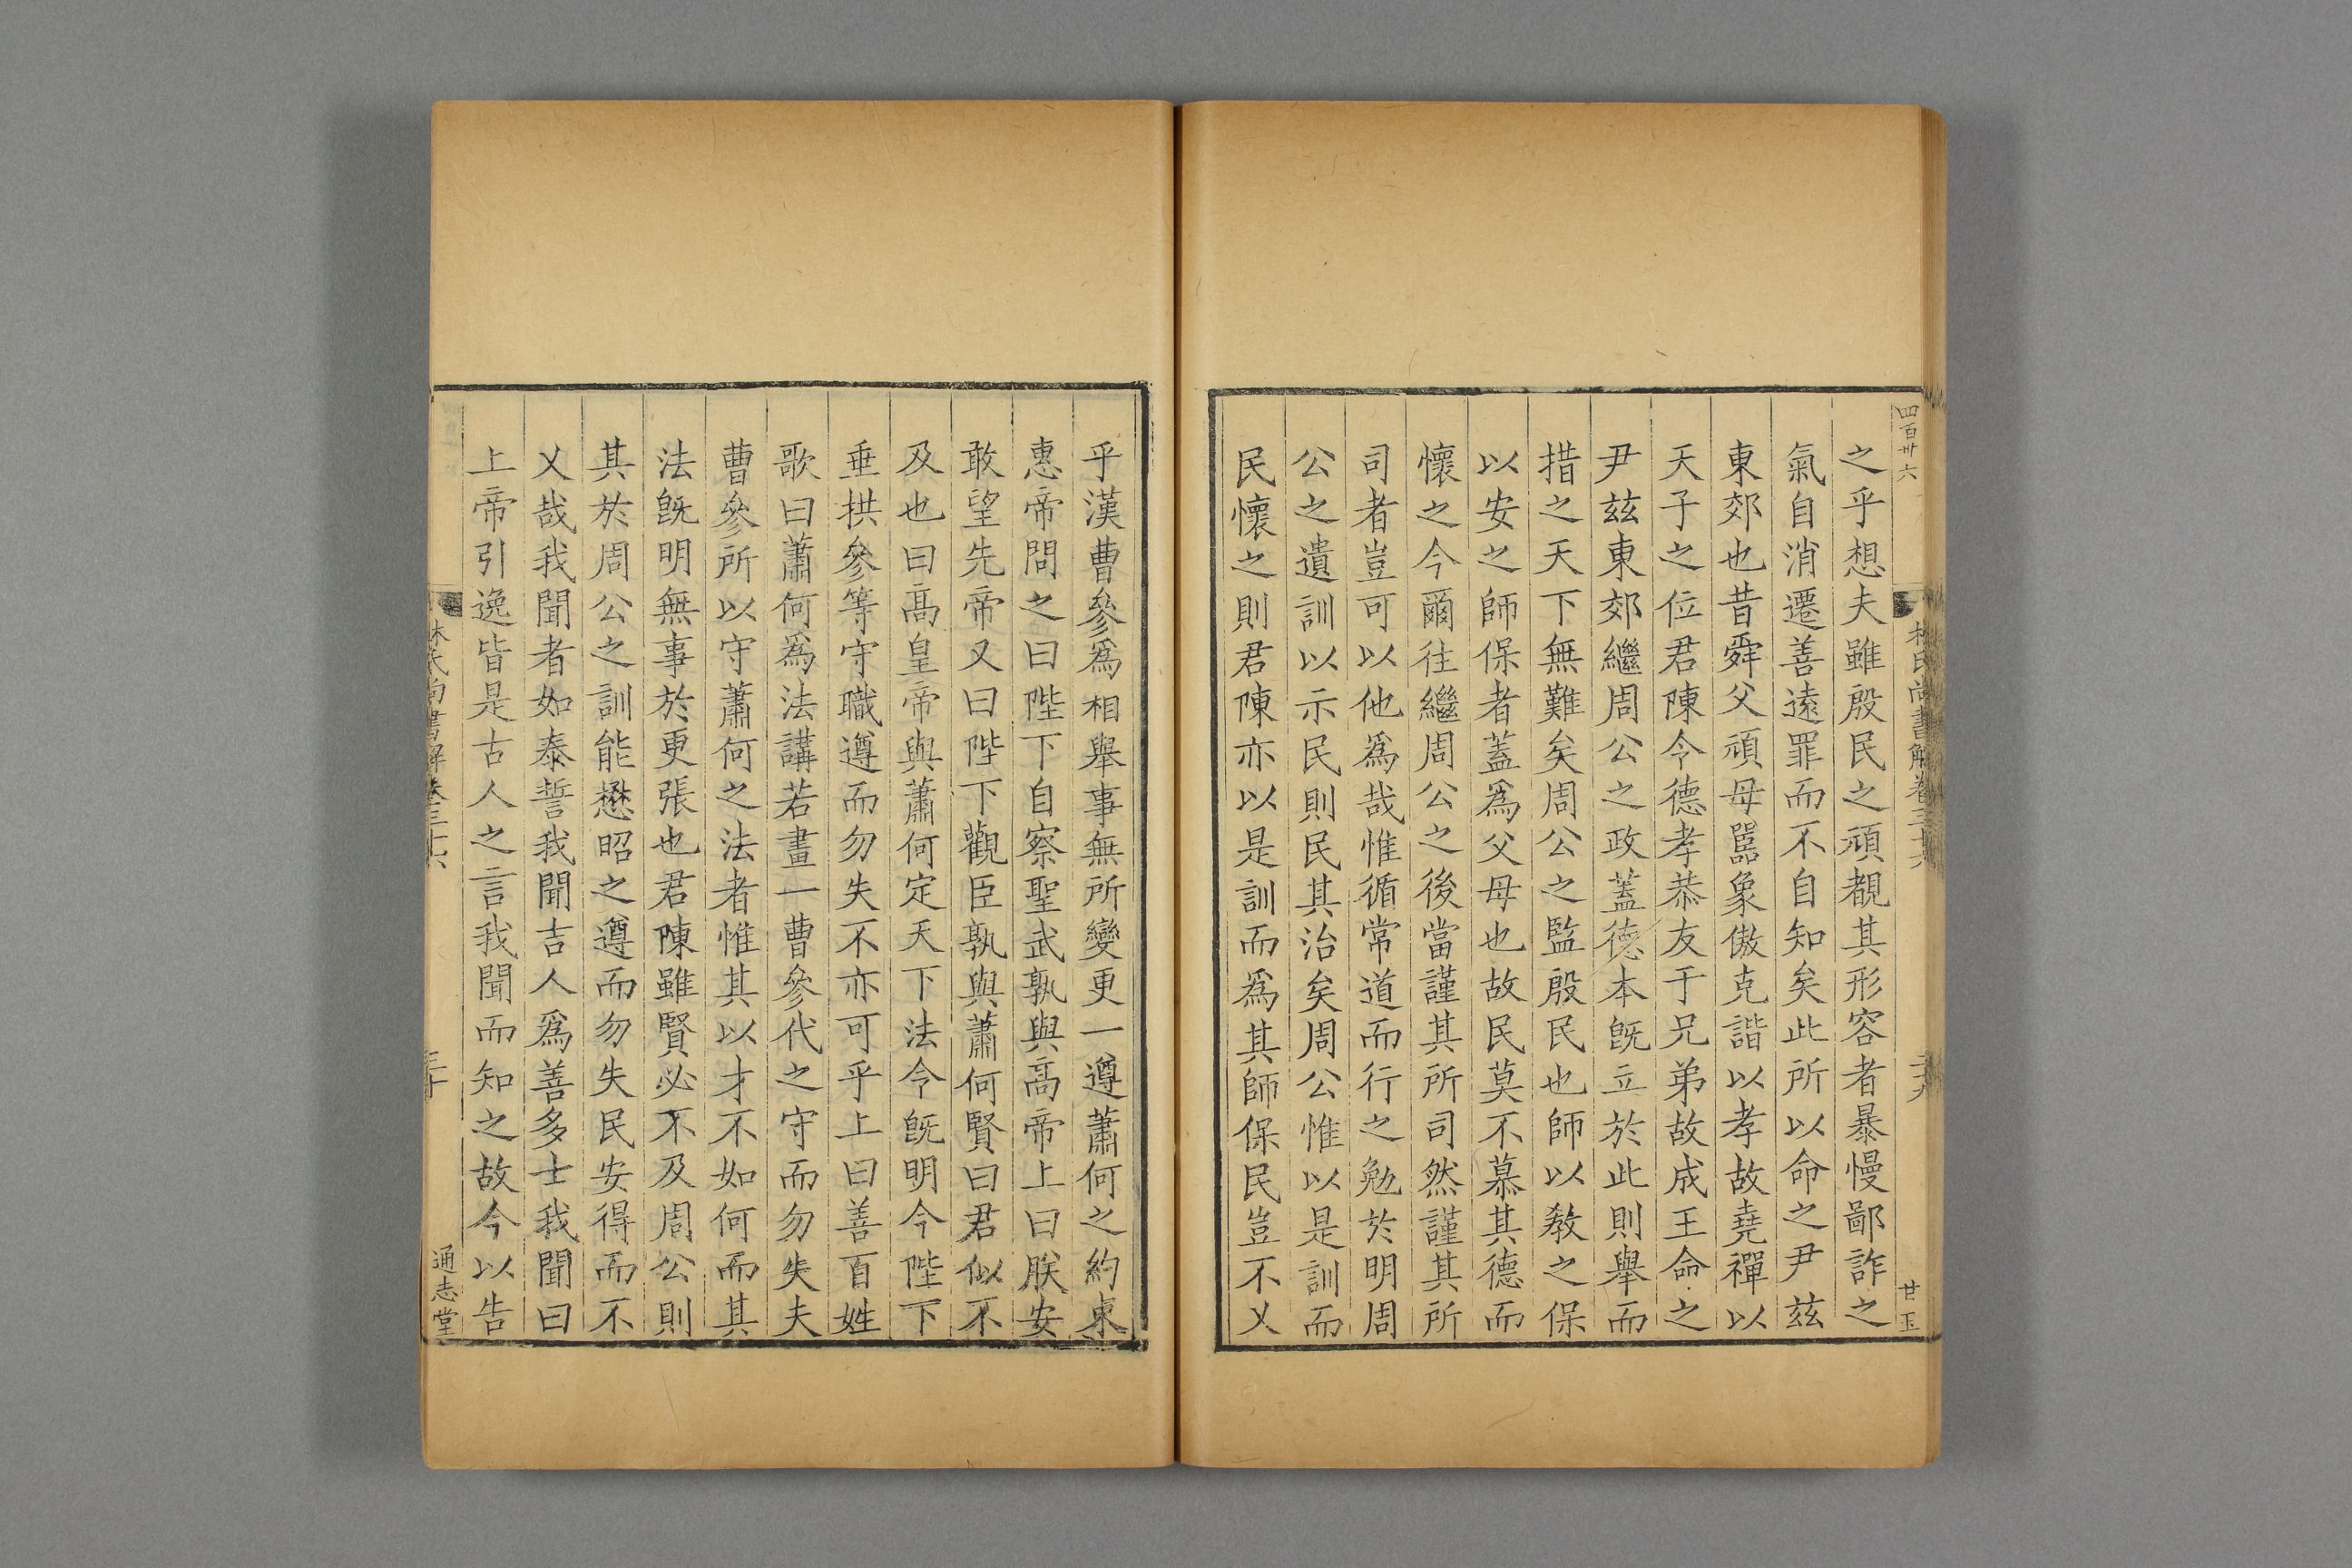 四百卅六
林氏尚書解卷三十六
二十九
甘玉
之乎想夫雖殷民之頑覩其形容者暴慢鄙詐之
氣自消遷善遠罪而不自知矣此所以命之尹茲
東郊也昔舜父頑母嚚象傲克諧以孝故堯禪以
天子之位君陳令德孝恭友于兄弟故成王命之
尹茲東郊繼周公之政蓋德本旣立於此則舉而
措之天下無難矣周公之監殷民也師以敎之保
以安之師保者蓋爲父母也故民莫不慕其德而
懷之今爾往繼周公之後當謹其所司然謹其所
司者豈可以他爲哉惟循常道而行之勉於明周
公之遺訓以示民則民其治矣周公惟以是訓而
民懷之則君陳亦以是訓而爲其師保民豈不乂
乎漢曹參爲相舉事無所變更一遵蕭何之約束
惠帝問之曰陛下自察聖武孰與高帝上曰朕安
敢望先帝又曰陛下觀臣孰與蕭何賢曰君似不
及也曰高皇帝與蕭何定天下法令旣明今陛下
垂拱參等守職遵而勿失不亦可乎上曰善百姓
歌曰蕭何爲法講若畫一曹參代之守而勿失夫
曹參所以守蕭何之法者惟其以才不如何而其
法旣明無事於更張也君陳雖賢必不及周公則
其於周公之訓能懋昭之遵而勿失民安得而不
乂哉我聞者如泰誓我聞吉人爲善多士我聞曰
上帝引逸皆是古人之言我聞而知之故今以告
林氏尚書解卷三十六
三十
通志堂